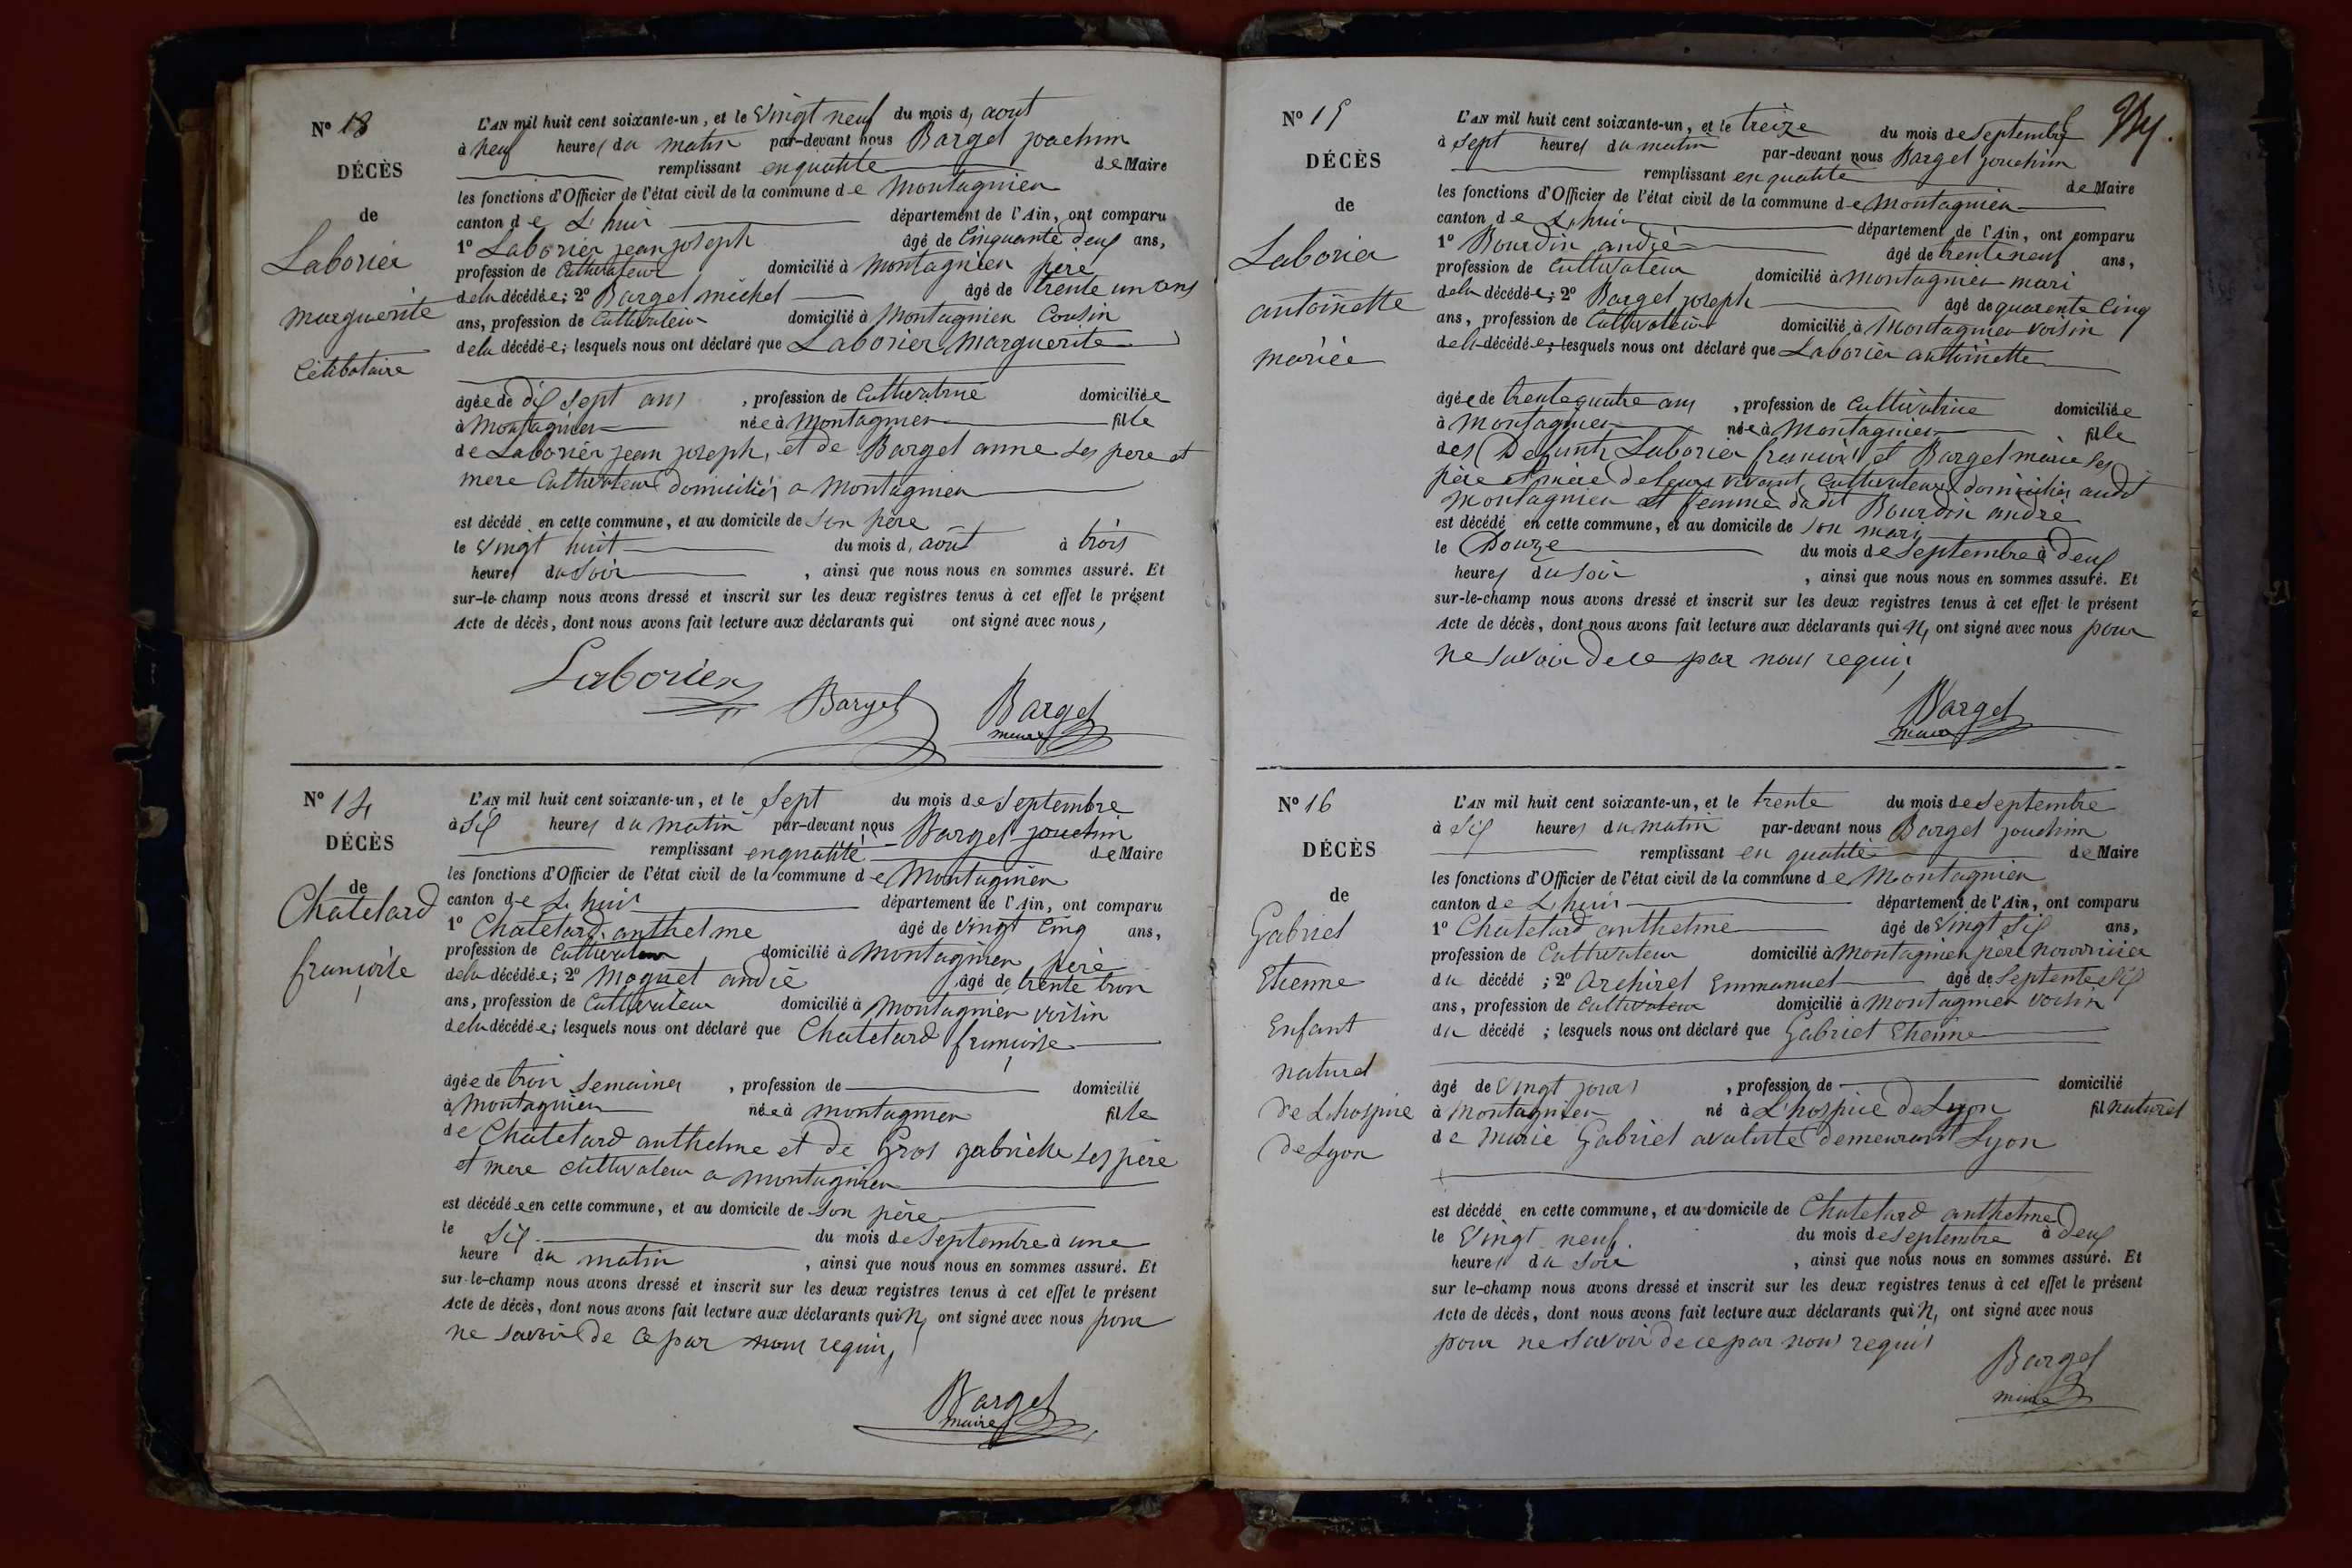 Nº 13
DÉCÈS
de
Laborier
marguerite
Célibataire
L'AN mil huit cent soixante-un, et le Vingt neuf du mois d, aout
à neuf heures du matin par-devant nous Barget joachim
remplissant en qualité de Maire
les fonctions d'Officier de l'état civil de la commune de Montagnieu
canton de L'huis département de l'Ain, ont comparu
1º Laborier jean joseph âgé de Cinquante deux ans,
profession de Cultivateur domicilié à Montagnieu père
de la décédée; 2º Barget michel âgé de trente un ans
ans, profession de Cultivateur domicilié à Montagnieu Cousin
de la décédée; lesquels nous ont déclaré que Laborier Marguerite
âgée de dix sept ans, profession de Cultivatrice domiciliée
à Montagnieu née à Montagnieu fille
de Laborier jean joseph, et de Barget anne ses pere et
mere Cultivateurs domiciliés a Montagnieu
est décédé en cette commune, et au domicile de son père
le Vingt huit du mois d, août à trois
heures du Soir, ainsi que nous nous en sommes assuré. Et
sur-le-champ nous avons dressé et inscrit sur les deux registres tenus à cet effet le présent
Acte de décès, dont nous avons fait lecture aux déclarants qui ont signé avec nous,
Laborier Barget Barget
maire
Nº 14
DÉCÈS
de
Chatelard
françoise
L'AN mil huit cent soixante-un, et le Sept du mois de Septembre
à Six heures du matin par-devant nous Barget joachim
remplissant en qualité de Maire
les fonctions d'Officier de l'état civil de la commune de Montagnieu
canton de L'huis département de l'Ain, ont comparu
1º Chatelard anthelme âgé de Vingt Cinq ans,
profession de Cultivateur domicilié à Montagnieu père
de la décédée; 2º Moquet andré âgé de trente trois
ans, profession de Cultivateur domicilié à Montagnieu voisin
de la décédée; lesquels nous ont déclaré que Chatelard françoise
âgée de trois Semaines, profession de domicilié
à Montagnieu née à Montagnieu fille
de Chatelard anthelme et de Gros gabrielle ses père
et mere Cultivateur a Montagnieu
est décédée en cette commune, et au domicile de son père
le Six du mois de Septembre à une
heure du matin, ainsi que nous nous en sommes assuré. Et
sur-le-champ nous avons dressé et inscrit sur les deux registres tenus à cet effet le présent
Acte de décès, dont nous avons fait lecture aux déclarants qui N, ont signé avec nous pour
ne savoir de ce par nous requis,
Barget
maire
Nº 15
DÉCÈS
de
Laborier
antoinette
mariée
L'AN mil huit cent soixante-un, et le treize du mois de Septembre
à Sept heures du matin par-devant nous Barget joachim
remplissant en qualité de Maire
les fonctions d'Officier de l'état civil de la commune de Montagnieu
canton de L'huis département de l'Ain, ont comparu
1º Bourdin andré âgé de trente neuf ans,
profession de Cultivateur domicilié à Montagnieu mari
de la décédée; 2º Barget joseph âgé de quarente Cinq
ans, profession de Cultivateur domicilié à Montagnieu voisin
de la décédée; lesquels nous ont déclaré que Laborier antoinette
âgée de trente quatre ans, profession de Cultivatrice domiciliée
à Montagnieu née à Montagnieu fille
des Defunts Laborier françois et Barget marie ses
père et mère de leurs vivant Cultivateurs domiciliés audit
Montagnieu et femme dudit Bourdin andré
est décédé en cette commune, et au domicile de son mari
le Douze du mois de Septembre à deux
heures du soir, ainsi que nous nous en sommes assuré. Et
sur-le-champ nous avons dressé et inscrit sur les deux registres tenus à cet effet le présent
Acte de décès, dont nous avons fait lecture aux déclarants qui N, ont signé avec nous pour
ne savoir de ce par nous requis,
Barget
maire
Nº 16
DÉCÈS
de
Gabriel
Etienne
Enfant
naturel
de L'hospice
de Lyon
L'AN mil huit cent soixante-un, et le trente du mois de Septembre
à Six heures du matin par-devant nous Barget joachim
remplissant en qualité de Maire
les fonctions d'Officier de l'état civil de la commune de Montagnieu
canton de L'huis département de l'Ain, ont comparu
1º Chatelard anthelme âgé de Vingt Six ans,
profession de Cultivateur domicilié à Montagnieu père nourricier
du décédé; 2º Archirel Emmanuel âgé de Septente Six
ans, profession de Cultivateur domicilié à Montagnieu voisin
du décédé; lesquels nous ont déclaré que Gabriel Etienne
âgé de Vingt jours, profession de domicilié
à Montagnieu né à L'hospice de Lyon fil naturel
de Marie Gabriel demeurant Lyon
est décédé en cette commune, et au domicile de Chatelard anthelme
le Vingt neuf du mois de Septembre à deux
heures du soir, ainsi que nous nous en sommes assuré. Et
sur le-champ nous avons dressé et inscrit sur les deux registres tenus à cet effet le présent
Acte de décès, dont nous avons fait lecture aux déclarants qui N, ont signé avec nous
pour ne savoir de ce par nous requis
Barget
maire